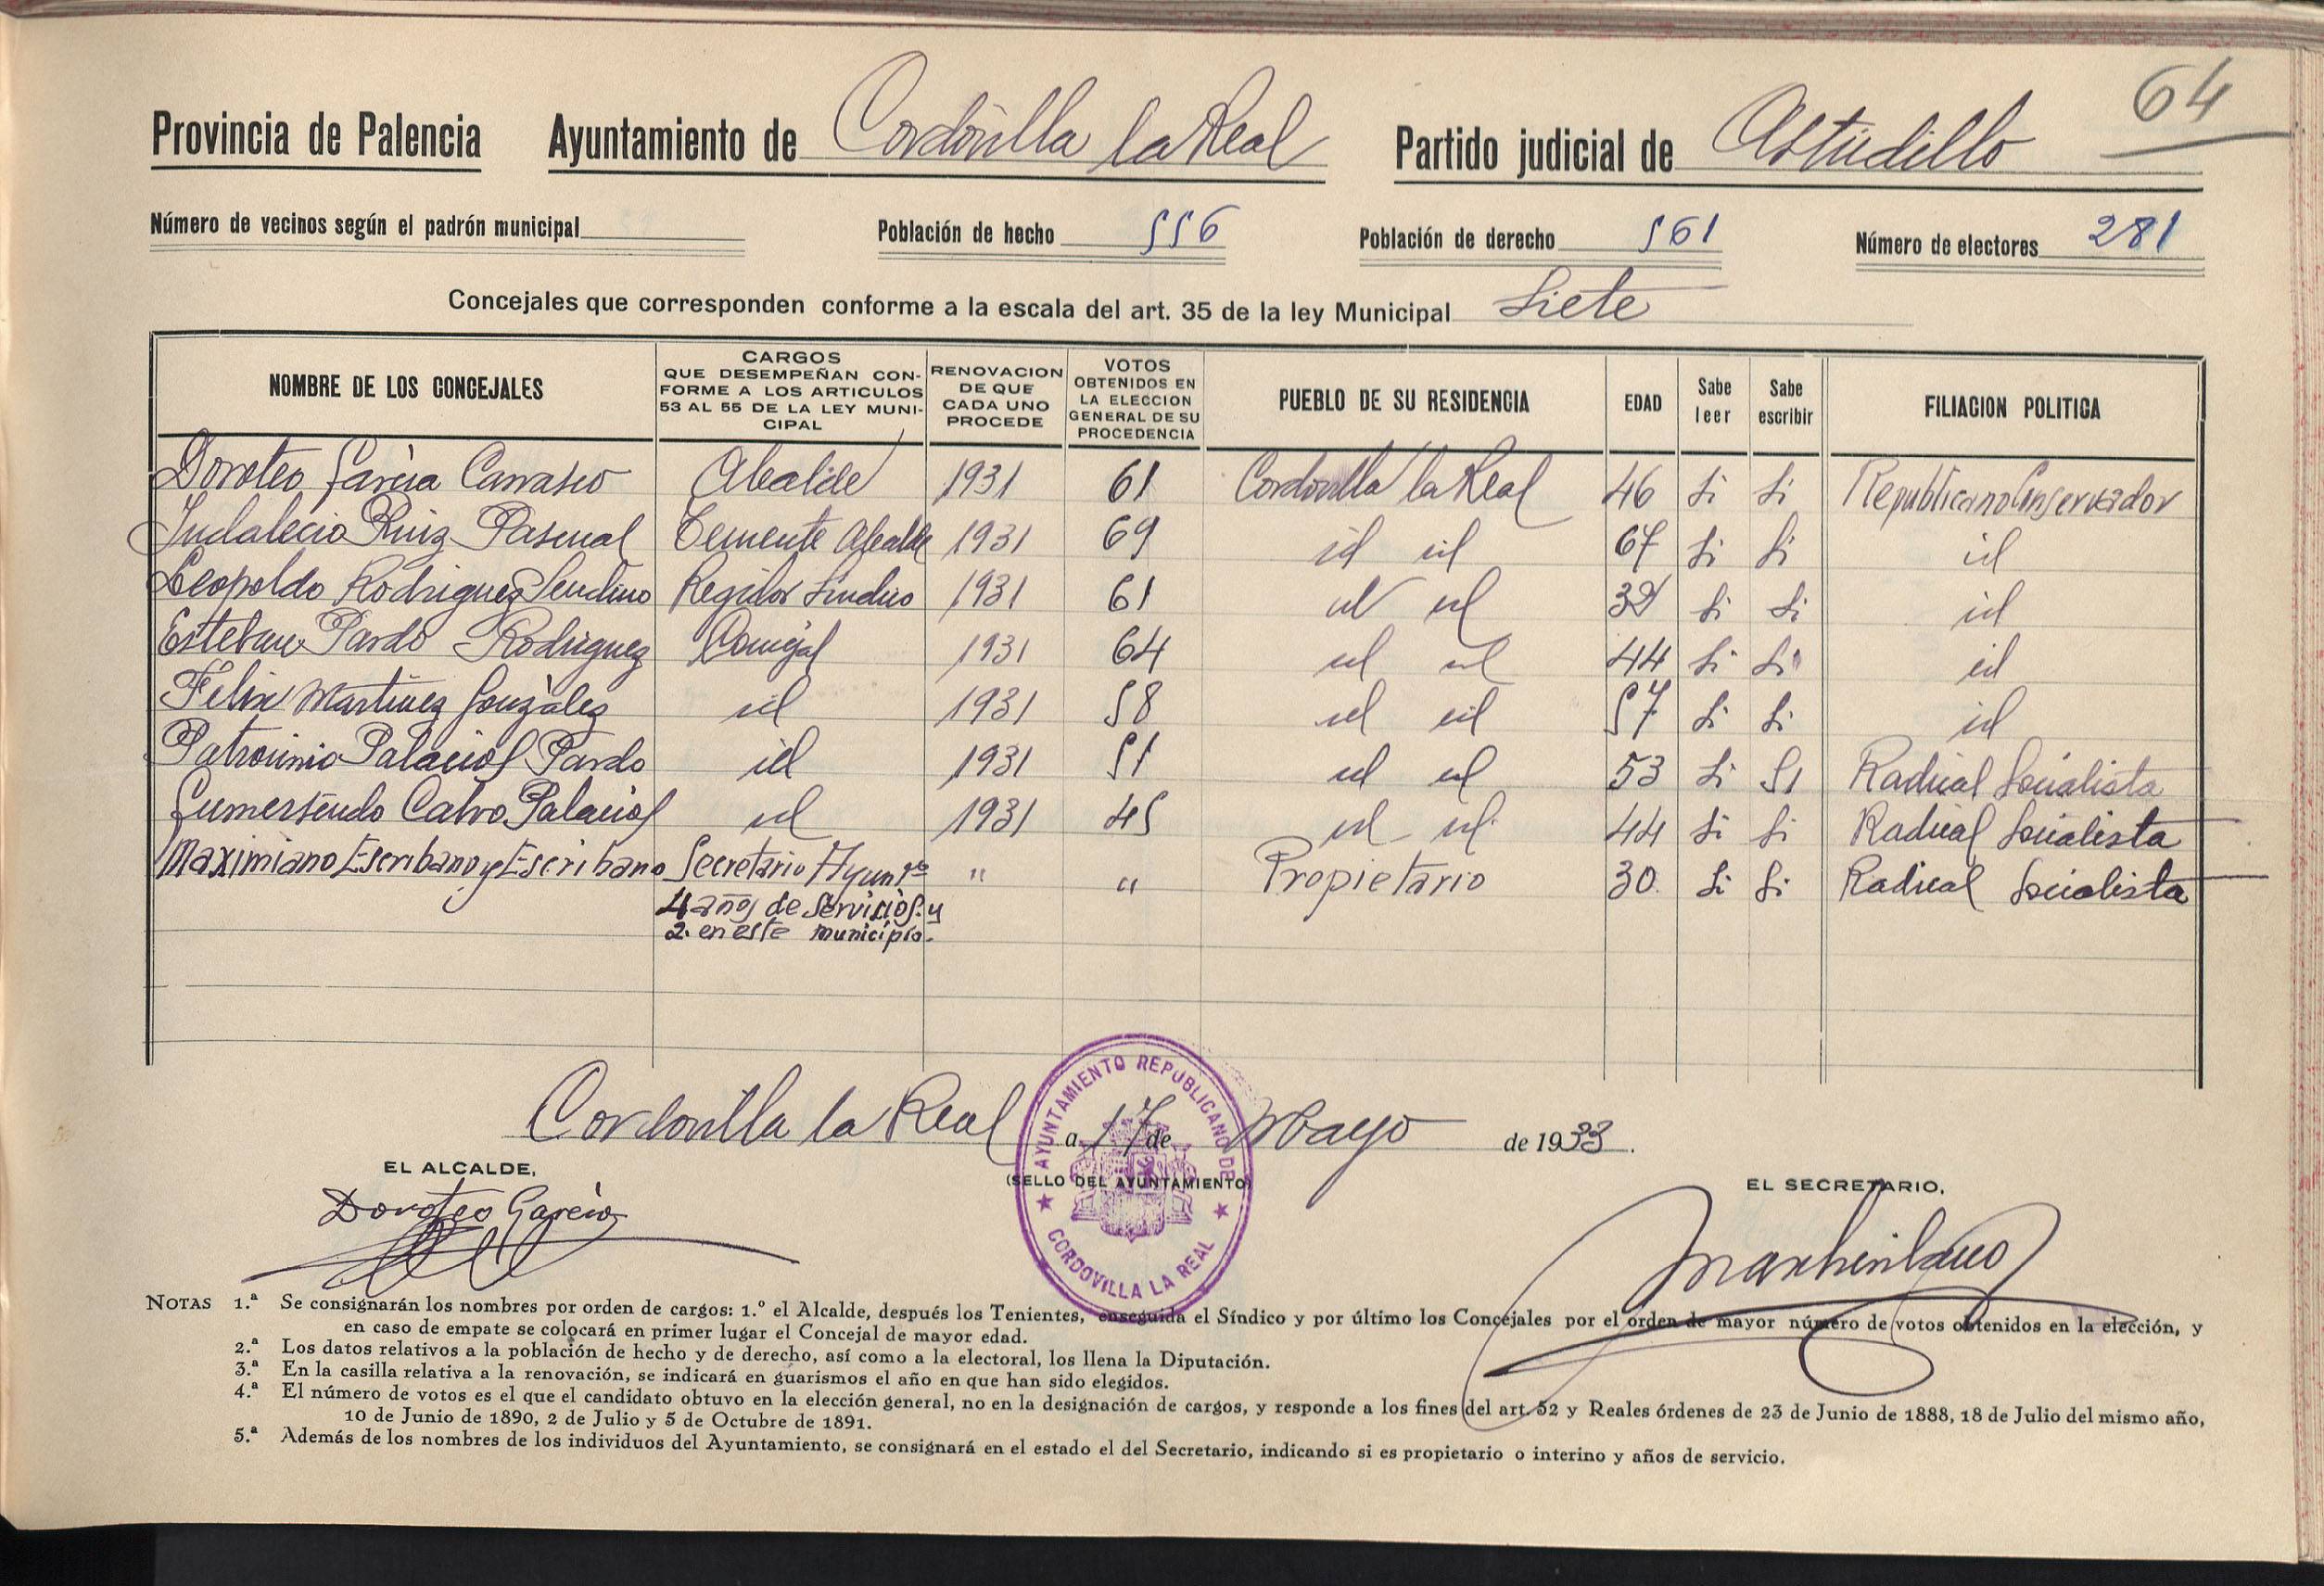 64
Provincia de Palencia Ayuntamiento de Cordovilla la Real Partido judicial de Astudillo
Número de vecinos según el padrón municipal Población de hecho 556 Población de derecho 561 Número de electores 281
Concejales que corresponden conforme a la escala del art. 35 de la ley Municipal Siete
NOMBRE DE LOS CONCEJALES CARGOS QUE DESEMPEÑAN CONFORME A LOS ARTICULOS 53 AL 55 DE LA LEY MUNICIPAL RENOVACION DE QUE CADA UNO PROCEDE VOTOS OBTENIDOS EN LA ELECCION GENERAL DE SU PROCEDENCIA PUEBLO DE SU RESIDENCIA EDAD Sabe leer Sabe escribir FILIACION POLITICA
Doroteo García Carrasco Alcalde 1931 61 Cordovilla la Real 46 Si Si Republicano Conservador
Indalecio Ruiz Pascual Teniente Alcalde 1931 69 id id 67 Si Si id
Leopoldo Rodriguez Sendino Regidor Sindico 1931 61 id id Si Si id
Esteban Pardo Rodriguez Concejal 1931 64 id id 44 Si Si id
Félix Martínez González id 1931 58 id id 57 Si Si id
Patrocinio Palacios Pardo id 1931 51 id id 53 Si Si Radical Socialista
Gumersindo Calvo Palacios id 1931 45 id id 44 Si Si Radical Socialista
Maximiano Escribano y Escribano Secretario Ayunto " " Propietario 30. Si Si Radical Socialista
4 años de servicios. y
2. en este municipio.
Cordovilla la Real a 17 de Mayo de 1933.
AYUNTAMIENTO REPUBLICANO DE
★ CORDOVILLA LA REAL ★
(SELLO DEL AYUNTAMIENTO)
EL ALCALDE,
Doroteo García
EL SECRETARIO,
NOTAS 1.ª Se consignarán los nombres por orden de cargos: 1.º el Alcalde, después los Tenientes, enseguida el Síndico y por último los Concejales por el orden de mayor número de votos obtenidos en la elección, y
en caso de empate se colocará en primer lugar el Concejal de mayor edad.
2.ª Los datos relativos a la población de hecho y de derecho, así como a la electoral, los llena la Diputación.
3.ª En la casilla relativa a la renovación, se indicará en guarismos el año en que han sido elegidos.
4.ª El número de votos es el que el candidato obtuvo en la elección general, no en la designación de cargos, y responde a los fines del art. 52 y Reales órdenes de 23 de Junio de 1888, 18 de Julio del mismo año,
10 de Junio de 1890, 2 de Julio y 5 de Octubre de 1891.
5.ª Además de los nombres de los individuos del Ayuntamiento, se consignará en el estado el del Secretario, indicando si es propietario o interino y años de servicio.